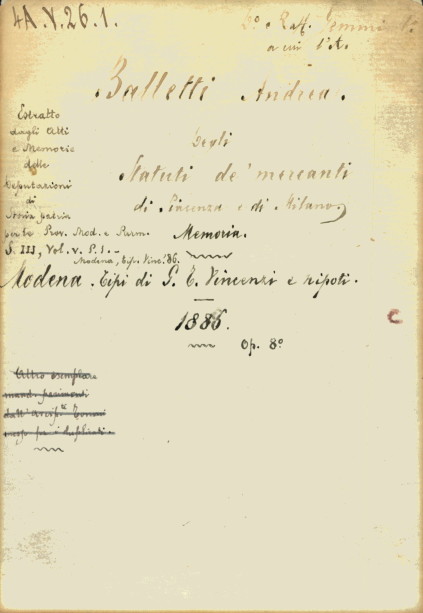 4A.V.26.1.
D.º e Raff. Gemmi
a cui l'A.
Balletti Andrea.
Degli
Statuti de' mercanti
di Piacenza e di Milano,
Memoria.
Estratto
dagli Atti
e Memorie
delle
Deputazioni
di
Storia patria
per le Prov. Mod. e Parm.
S. III, Vol. V. P. 1. -
Modena, Tip. Vinc. '86.
Modena. Tipi di G. T. Vincenzi e nipoti.
1886.
Op. 8º
Altro esemplare
mand. parimenti
dall'